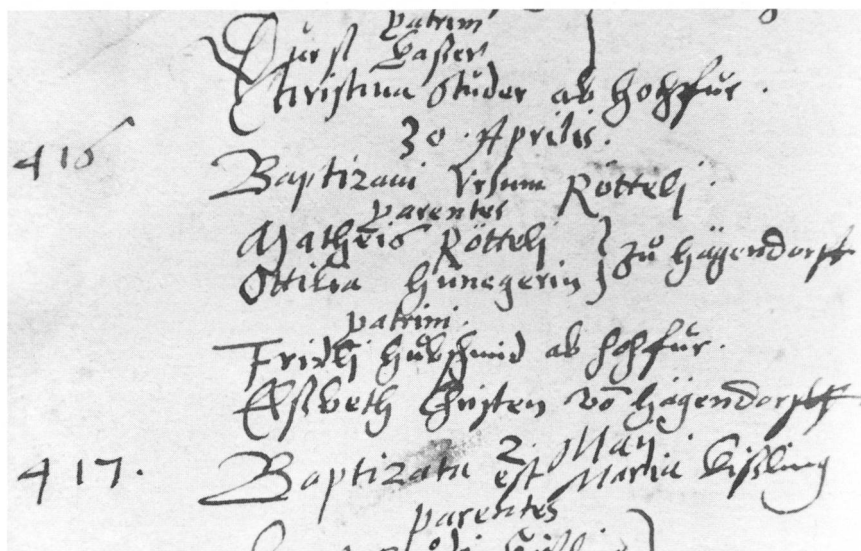 patrini
Durs Vaßer
Christina Studer ab hochfur.
30. Aprilis.
416 Baptizavi Ursum Rötteli.
parentes
Matheis Rötteli } zu Hägendorff
Ottilia Hünegerin
patrini.
Fridli Hubschmid ab hochfur.
Elsbeth Christen vo Hägendorff
2. Maij.
417. Baptizata est Maria Kißling
parentes